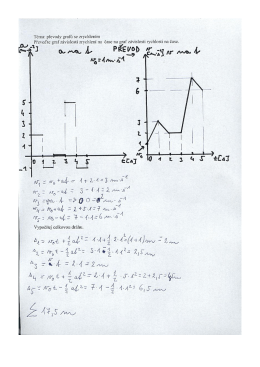 Téma: převody grafů se zrychlením
Převeďte graf závislosti zrychlení na čase na graf závislosti rychlosti na čase.
a na t PŘEVOD v na t
v₀ = 1 m·s⁻¹
7
6
5
4
3
2
1
0 1 2 3 4 5 t[s]
-1
7
6
3
2
1
0 1 2 3 4 5 t[s]
v₁ = v₀ + at = 1 + 2·1 = 3 m·s⁻¹
v₂ = v₁ - at = 3 - 1·1 = 2 m·s⁻¹
= 2 + 5·1 = 7 m·s⁻¹
= 7 - 1·1 = 6 m·s⁻¹
Vypočítej celkovou dráhu.
s₁ = v₀t + ½at² = 1·1 + ½ = 2 m
s₂ = v₁t - ½at² = 3·1 - ½·1·1² = 2,5 m
s₃ = = 2·1 = 2 m
s₄ = v₃t + ½at² = 2·1 + ½·5·1² = 2 + 2,5 =
s₅ = v₄t - ½at² = 7·1 - ½·1·1² = 6,5 m
∑ 17,5 m